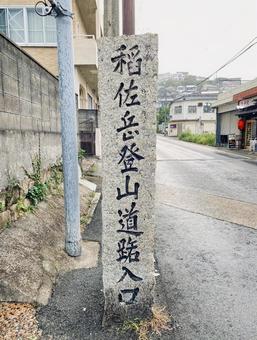 稲佐岳登山道踏入口